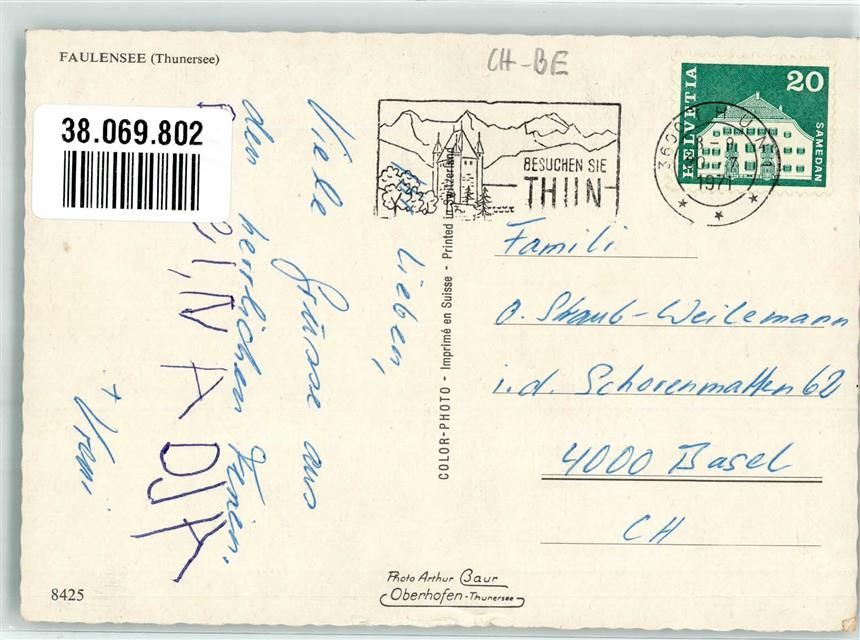 FAULENSEE (Thunersee)
CH-BE
38.069.802
HELVETIA
20
SAMEDAN
BESUCHEN SIE
THUN
3600 THUN
1971
Lieben,
Viele Grüsse aus
den herrlichen Ferien.
+ Vreni
ADJA
COLOR-PHOTO - Imprimé en Suisse - Printed in Switzerland
Famili
O. Straub-Weilemann
i.d. Schorenmatten 62
4000 Basel
CH
8425
Photo Arthur Baur
Oberhofen-Thunersee